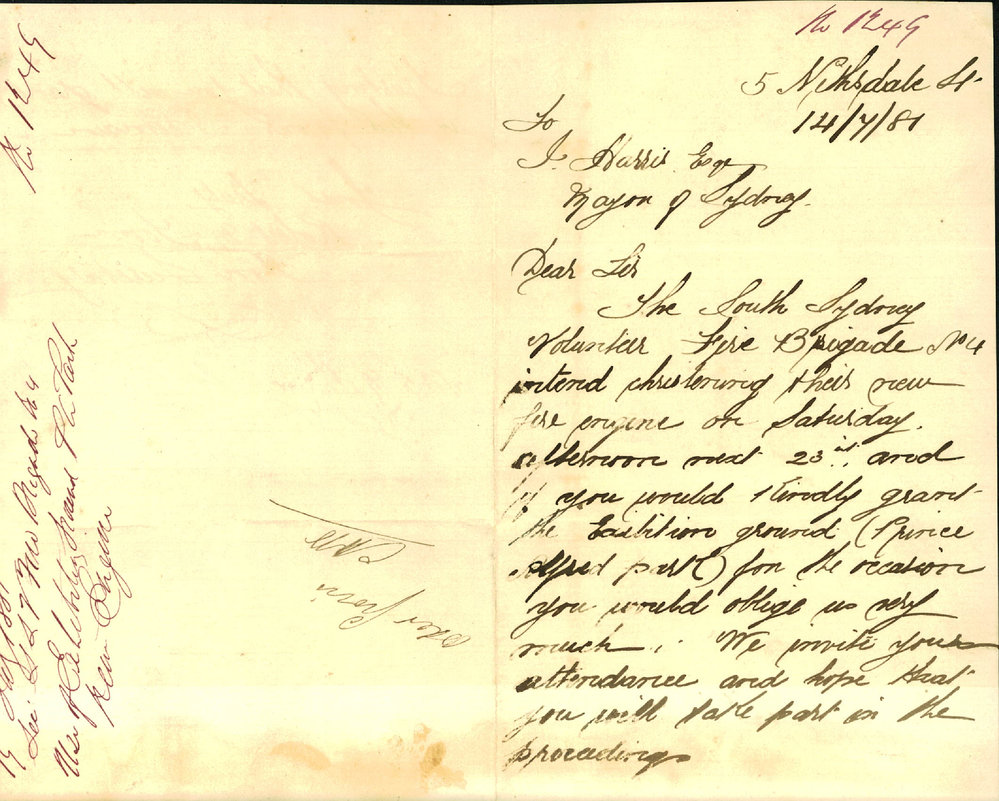 No 1249
5 Nithsdale St
14/7/81
To
J. Harris Esqr
Mayor of Sydney.
Dear Sir
The South Sydney
Volunteer Fire Brigade No 4
intend christening their new
fire engine on Saturday.
afternoon next 23rd. and
if you would kindly grant
the Exibition ground (Prince
Alfred park) for the occasion
you would oblige us very
much. We invite your
attendance and hope that
you will take part in the
proceedings
No 1249
1881
Sec: Syd V Fire Brigade No 4
Use of Exhibition Ground P A Park
New Engine